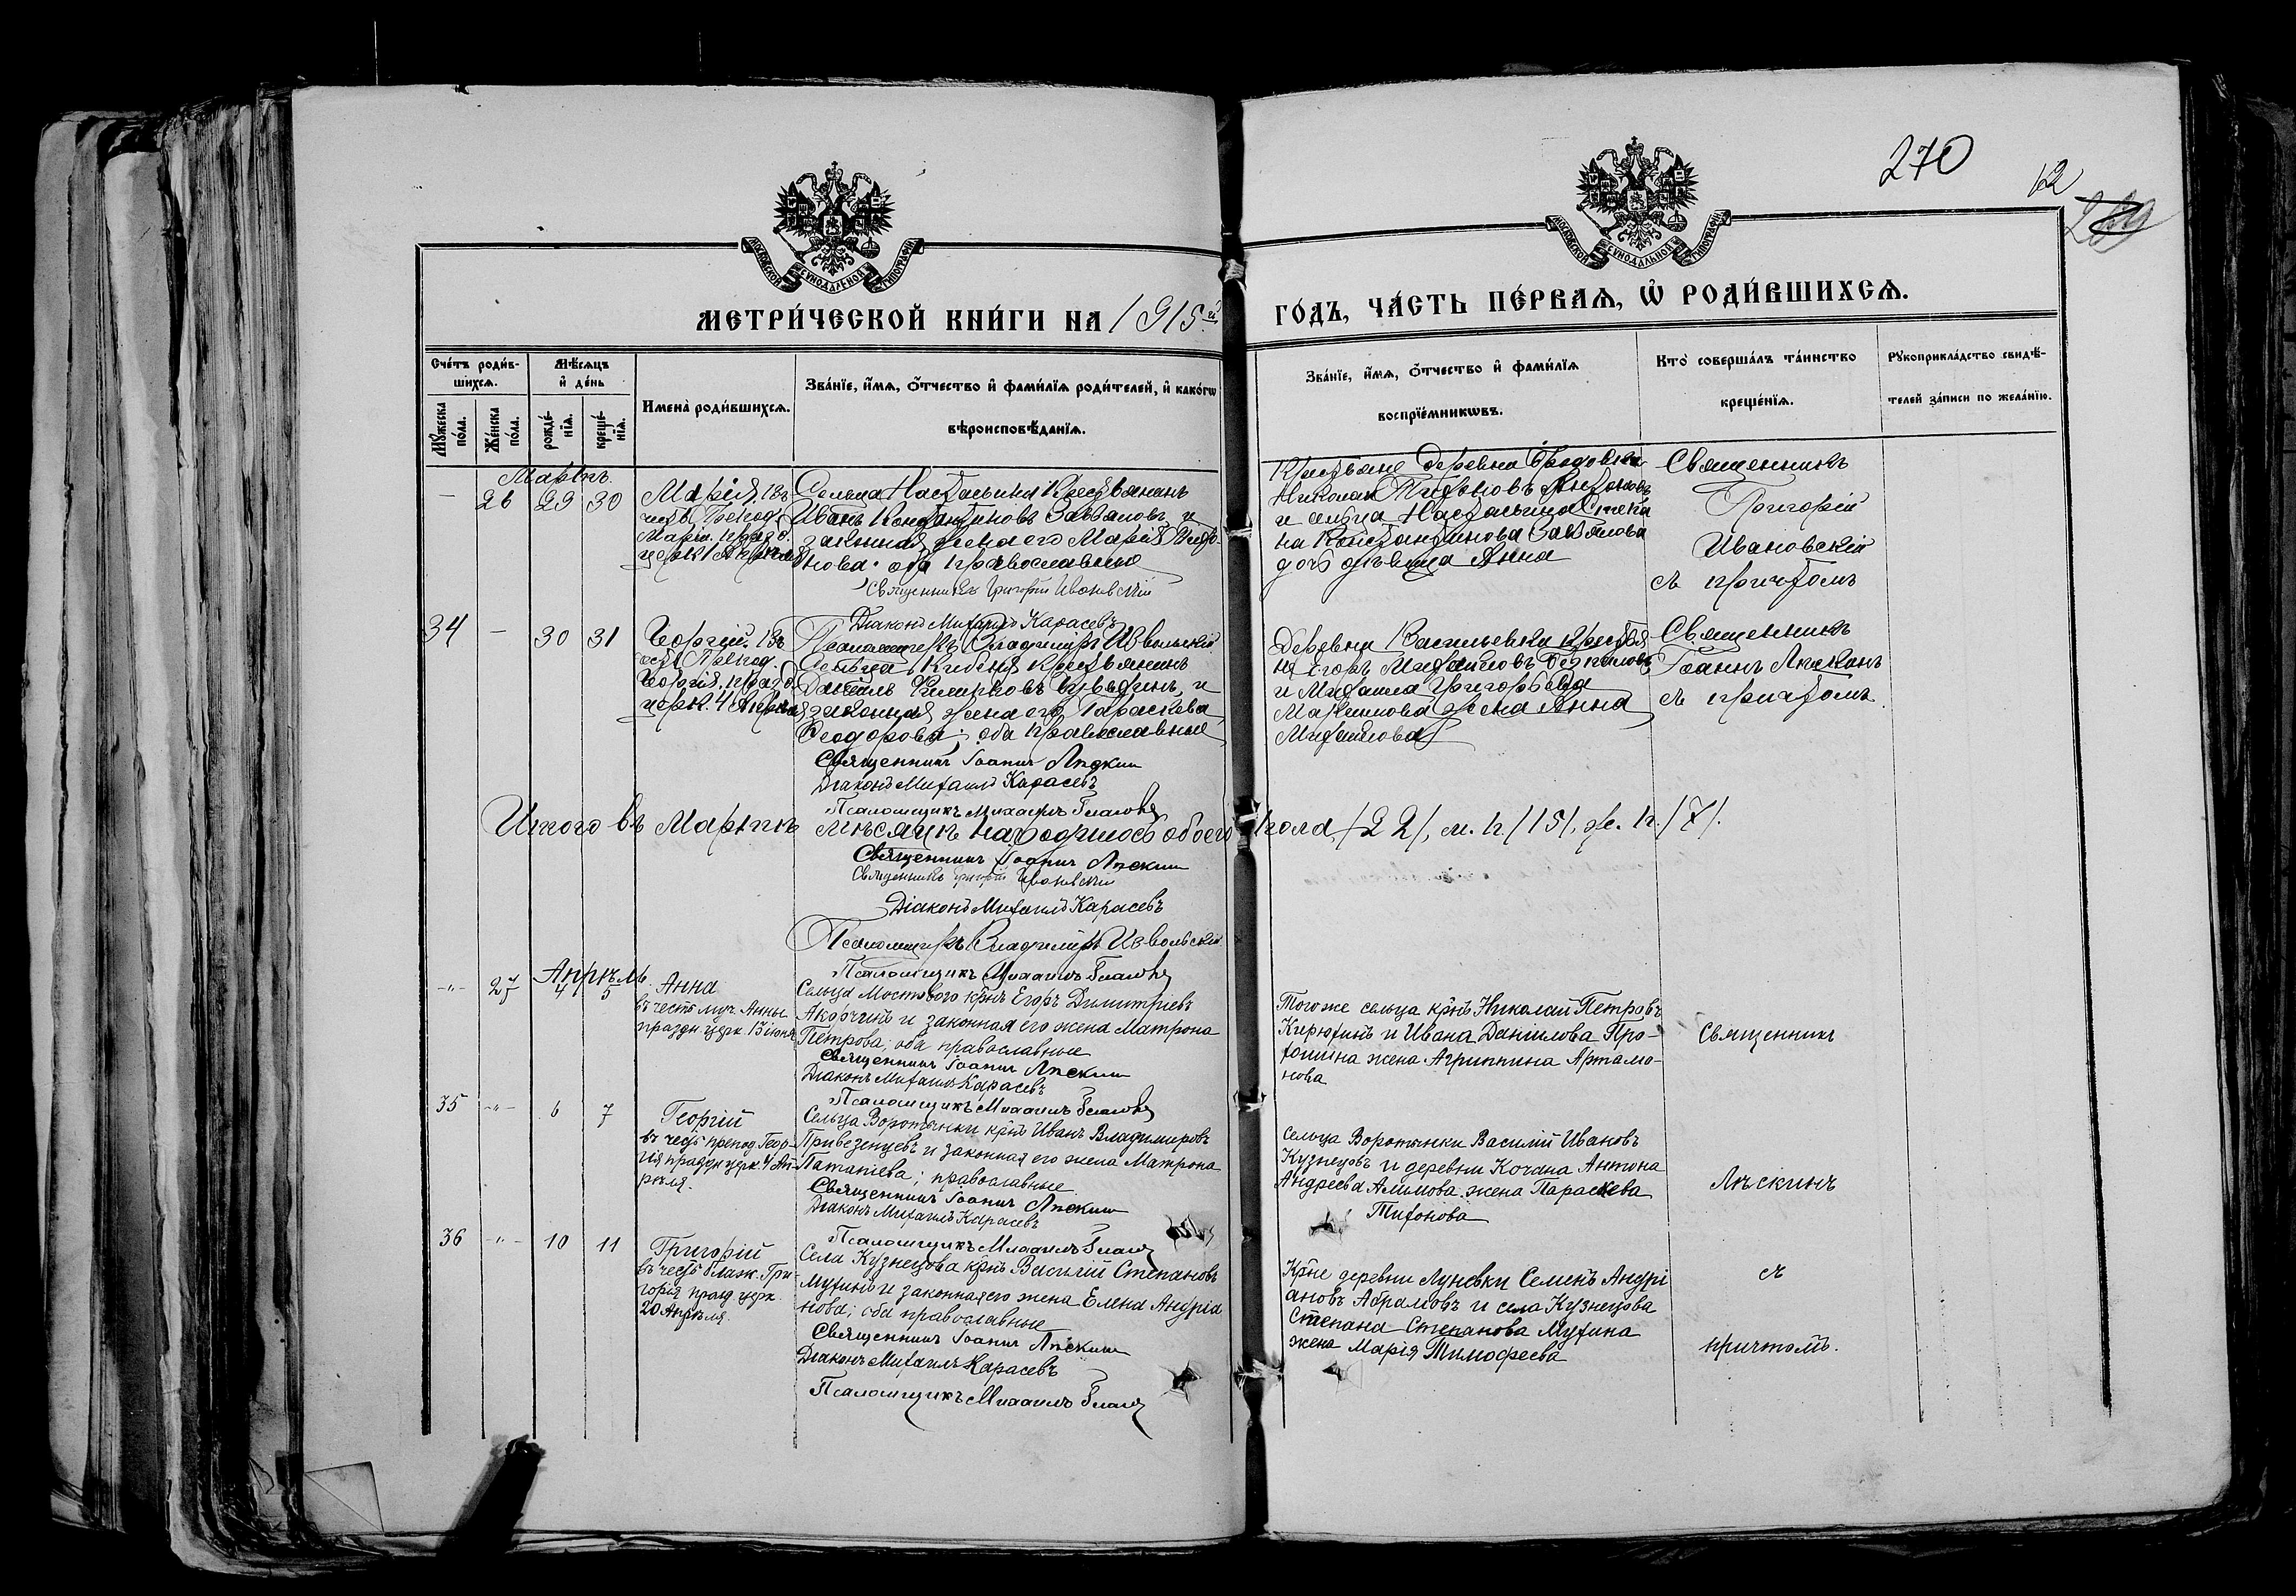 270
12
269
МОСКОВСКОЙ СУНОДАЛЬНОЙ ТИПОГРАФІИ
МОСКОВСКОЙ СУНОДАЛЬНОЙ ТИПОГРАФІИ
МЕТРИ́ЧЕСКОЙ КНИ́ГИ НА 1915й ГО́ДЪ, ЧА́СТЬ ПЕ́РВАѦ, Ѡ҆ РОДИ́ВШИХСѦ.
Сче́тъ роди́в-
шихсѧ.
Мꙋ́жеска по́ла.
Же́нска по́ла.
Мѣ́сѧцъ и҆ де́нь
рожде́-нїѧ.
креще́-нїѧ.
И҆мена̀ роди́вшихсѧ.
Зва́нїе, и҆́мѧ, ѻ҆́тчество и҆ фами́лїѧ роди́телей, и҆ како́гѡ
вѣроисповѣ́данїѧ.
Зва́нїе, и҆́мѧ, ѻ҆́тчество и҆ фами́лїѧ
воспрїе́мникѡвъ.
Кто̀ соверша́лъ та́инство
креще́нїѧ.
Рꙋкоприкла́дство свидѣ́-
телей за́писи по жела́нїю.
Мартъ.
— 26 29 30
Марія, въ
честь Препод.
Маріи. празд.
церк 1 Апреля
Сельца Настасьина Крестьянинъ
Иванъ Константиновъ Завяловъ, и
законная жена его Марія
нова. оба православные
Священникъ Григорій Ивановскій
Діаконъ Михаилъ Карасевъ
Псаломщикъ Владиміръ Извольскій
Крестьяне деревни
Николай Тихоновъ
и сельца Настасьина Степа
на Константинова Завялова
дочь девица Анна
Священникъ
Григорій
Ивановскій
съ причтомъ
34 — 30 31
Георгій. въ
честь Препод.
Георгія. празд.
церк. 4 Апреля
Сельца Крестьянинъ
Даніилъ и
законная жена его Параскева
Феодорова; оба православные
Священникъ Іоаннъ Лѣскинъ
Діаконъ Михаилъ Карасевъ
Псаломщикъ Михаилъ
Деревни Васильевки крестья
не Егоръ Михайловъ
и Михаила Григорьева
Мартинова жена Анна
Михайлова
Священникъ
Іоаннъ Лѣскинъ
съ причтомъ.
Итого въ Мартѣ мѣсяцѣ народилось обоего пола, /22/, м. п. /15/, ж. п. /7/.
Священникъ Іоаннъ Лѣскинъ
Священникъ Григорій Ивановскій
Діаконъ Михаилъ Карасевъ
Псаломщикъ Владиміръ Извольскій
Псаломщикъ Михаилъ
Апрѣль.
-"- 27 4 5
Анна
въ честь муч. Анны
праздн. церк. 13 іюня
Сельца Мостового кр̃нъ Егоръ Димитріевъ
Акорчинъ и законная его жена Матрона
Петрова; оба православные
Священникъ Іоаннъ Лѣскинъ
Діаконъ Михаилъ Карасевъ
Псаломщикъ Михаилъ
Того же сельца кр̃нъ Николай Петровъ
Кирюхинъ и Ивана Даніилова Про-
хошина жена Агриппина Артамо-
нова
Священникъ
35 -"- 6 7
Георгій
въ честь препод. Геор-
гія праздн церк. 4 Ап-
рѣля.
Сельца Воротынки кр̃нъ Иванъ Владимировъ
Привезенцевъ и законная его жена Матрона
Потапіева; православные.
Священникъ Іоаннъ Лѣскинъ
Діаконъ Михаилъ Карасевъ
Псаломщикъ Михаилъ
Сельца Воротынки Василій Ивановъ
Кузнецовъ и деревни Кочана Антона
Андреева Алимова жена Параскева
Тихонова
Лѣскинъ
36 -"- 10 11
Григорій
въ честь блаж. Гри-
горія празд церк.
20 Апрѣля.
Села Кузнецова кр̃нъ Василій Степановъ
Мухинъ и законная его жена Елена Андріа
нова; оба православные
Священникъ Іоаннъ Лѣскинъ
Діаконъ Михаилъ Карасевъ
Псаломщикъ Михаилъ
Кр̃не деревни Луневки Семенъ Андрі
ановъ Абрамовъ и села Кузнецова
Степана Степанова Мухина
жена Марія Тимофеева
съ
причтомъ.